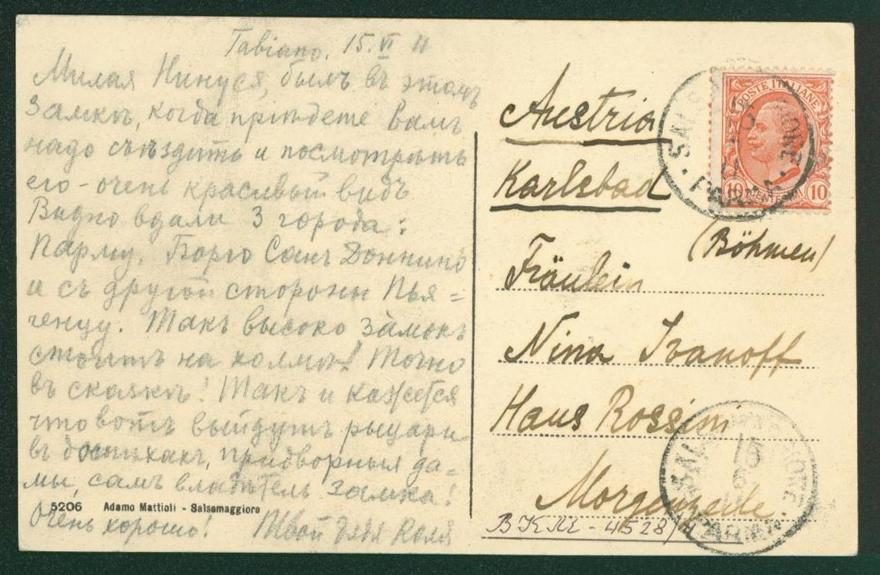 Tabiano. 15.VI 11
Милая Нинуся, былъ въ этомъ
Замкѣ, когда приѣдете вамъ
надо съѣздить и посмотрѣть
его - очень красивый видъ
Видно вдали 3 города:
Парму, Борго Санъ Доннино
и съ другой стороны Пья=
ченцу. Такъ высоко замокъ
стоитъ на холмѣ! Точно
въ сказкѣ! Такъ и кажется
что вотъ выйдутъ рыцари
въ доспѣхахъ, придворныя да=
мы, самъ владѣтель замка!
Очень хорошо! Твой дядя Коля
5206 Adamo Mattioli - Salsomaggiore
POSTE ITALIANE
10 CENTESIMI 10
SALSOMAGGIORE
PARMA
Austria
Karlsbad
(Böhmen)
Fräulein
Nina Ivanoff
Haus Rossini
Morgenzeile
ВКМ - 41528/
SALSOMAGGIORE
15
6
PARMA